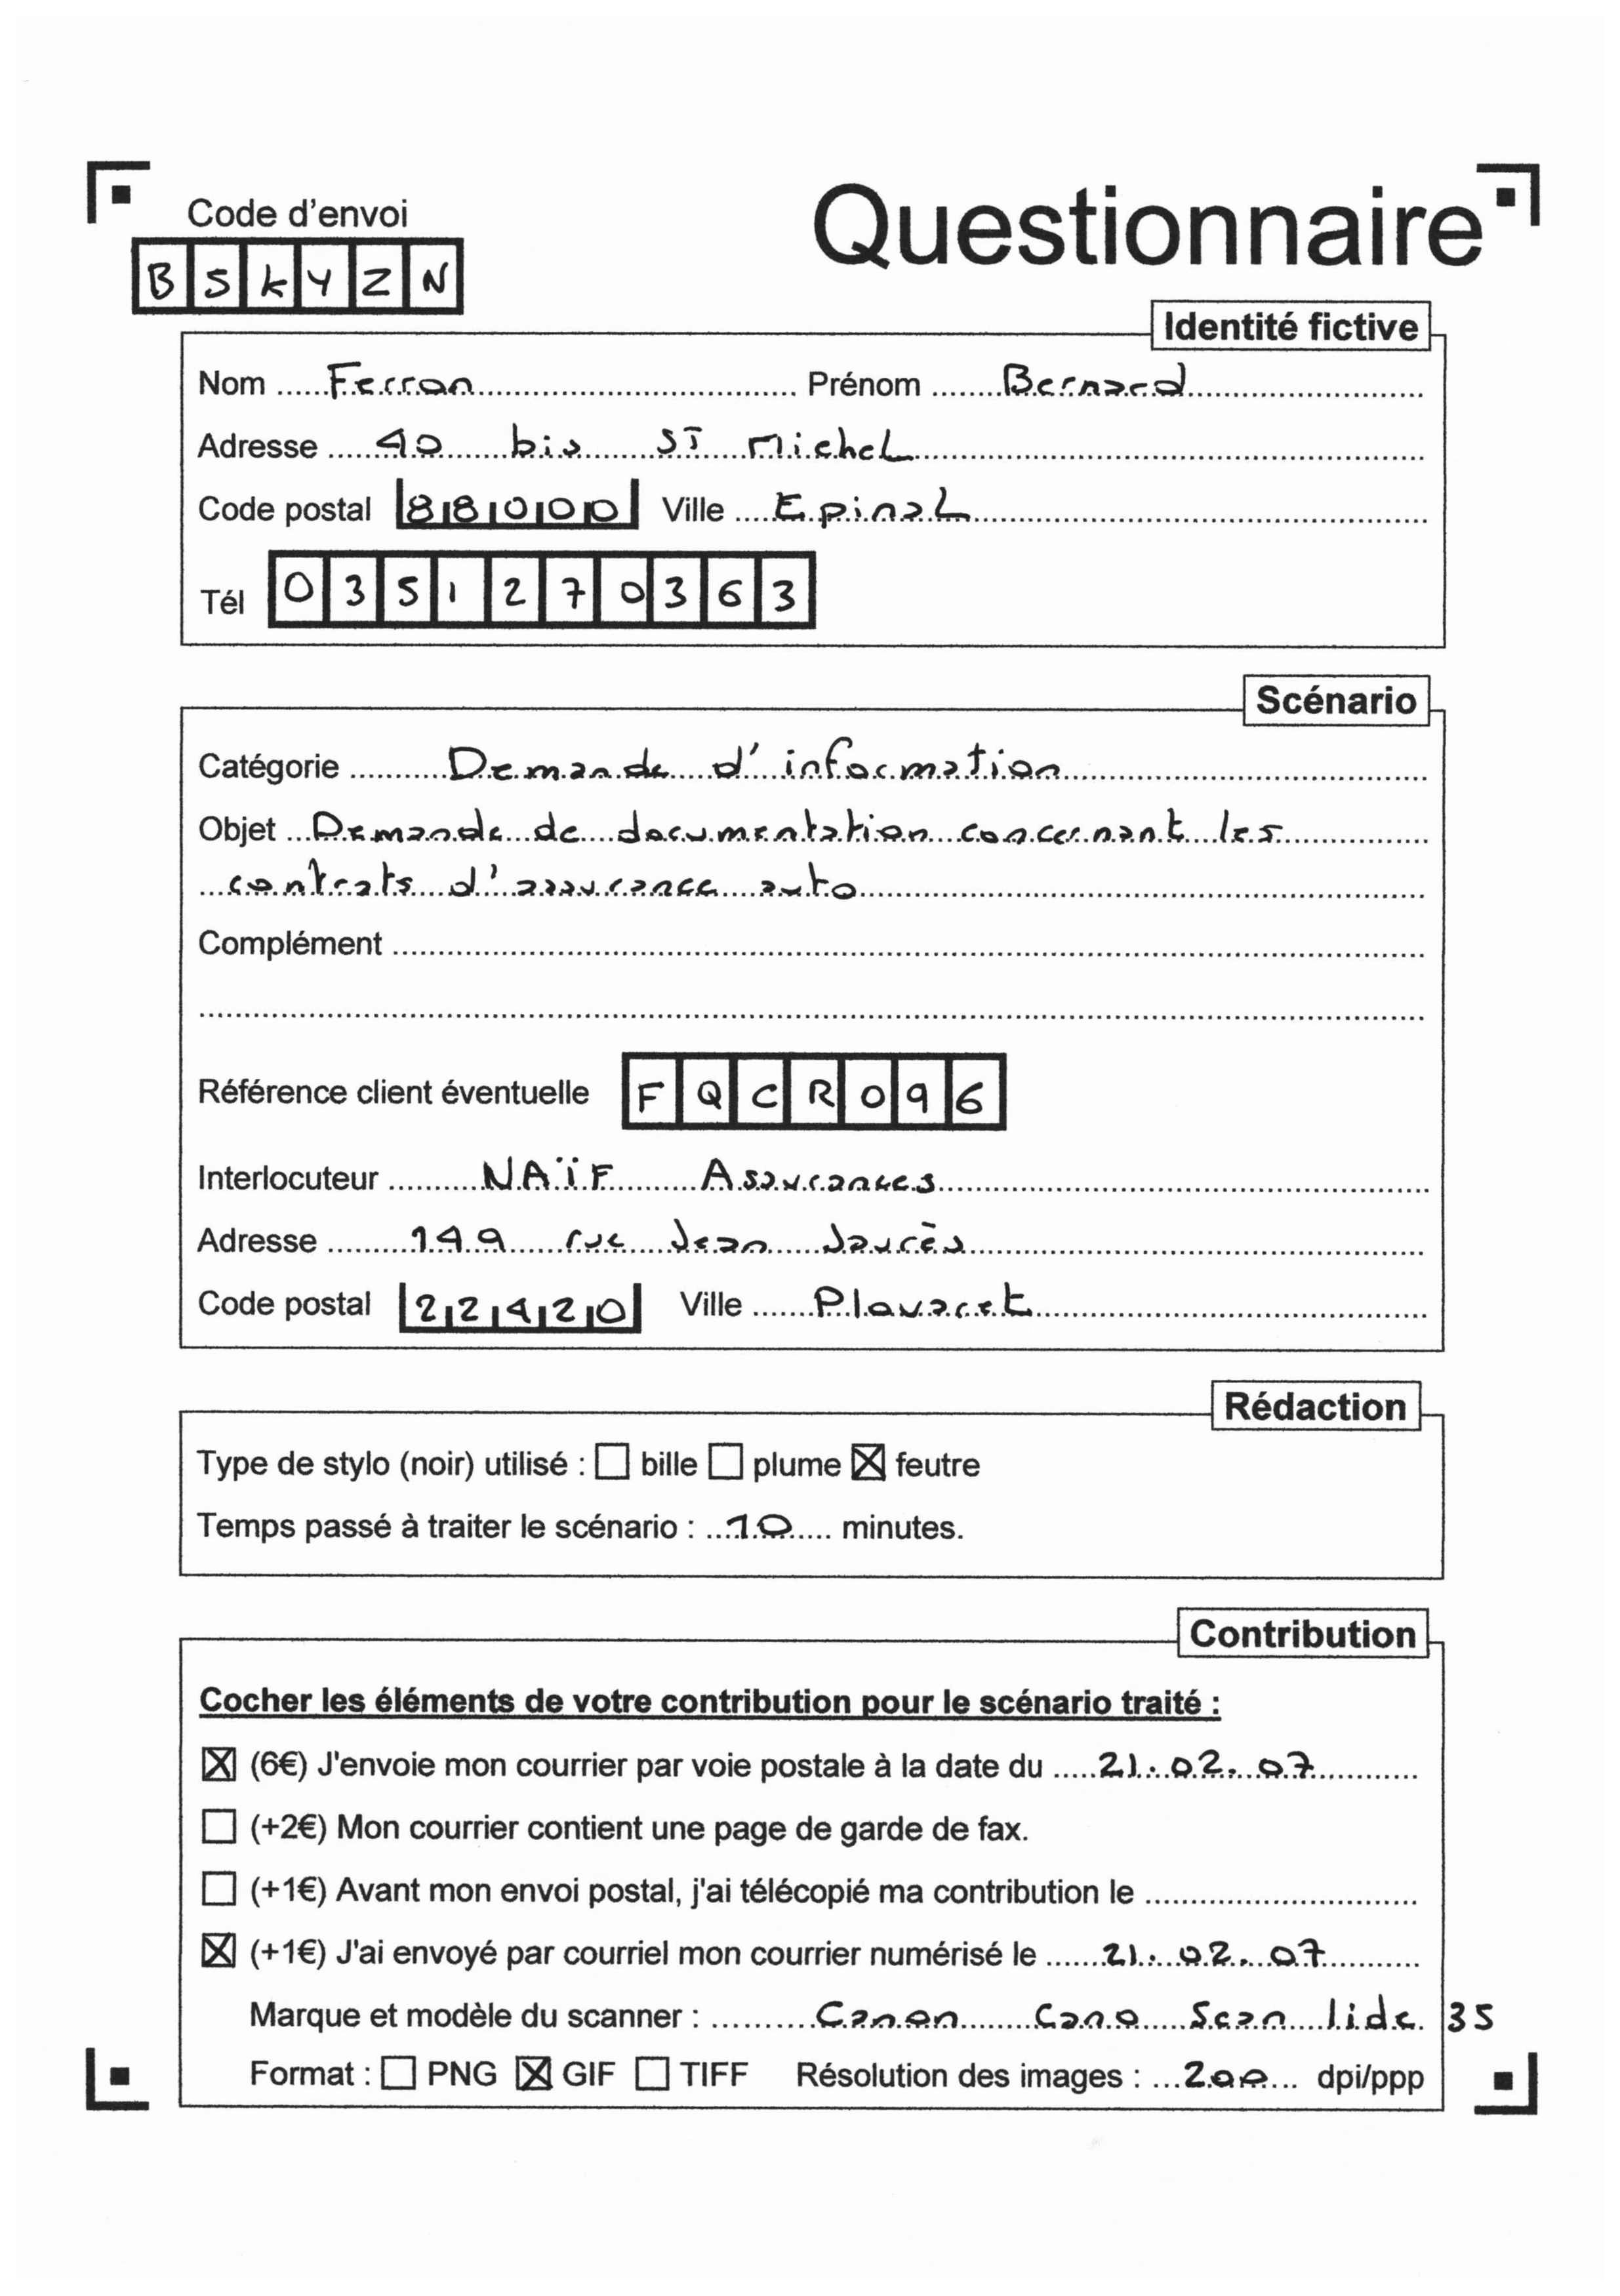 Code d'envoi
Questionnaire
B S K Y Z N
Identité fictive
Nom ..... Ferron ..... Prénom ..... Bernard .....
Adresse ..... 40 bis ST Michel .....
Code postal 88000 Ville ..... Epinal .....
Tél 0351270363
Scénario
Catégorie ..... Demande d'information .....
Objet ... Demande de documentation concernant les .....
... contrats d'assurance auto .....
Complément .....
Référence client éventuelle F Q C R 0 9 6
Interlocuteur ..... NAÏF Assurances .....
Adresse ..... 149 rue Jean Jaurès .....
Code postal 22420 Ville ..... Plouaret .....
Rédaction
Type de stylo (noir) utilisé : ☐ bille ☐ plume ☒ feutre
Temps passé à traiter le scénario : ... 10 ..... minutes.
Contribution
Cocher les éléments de votre contribution pour le scénario traité :
☒ (6€) J'envoie mon courrier par voie postale à la date du ..... 21.02.07 .....
☐ (+2€) Mon courrier contient une page de garde de fax.
☐ (+1€) Avant mon envoi postal, j'ai télécopié ma contribution le .....
☒ (+1€) J'ai envoyé par courriel mon courrier numérisé le ..... 21.02.07 .....
Marque et modèle du scanner : ..... Canon Cano Scan lide 35
Format : ☐ PNG ☒ GIF ☐ TIFF Résolution des images : ... 200 ... dpi/ppp